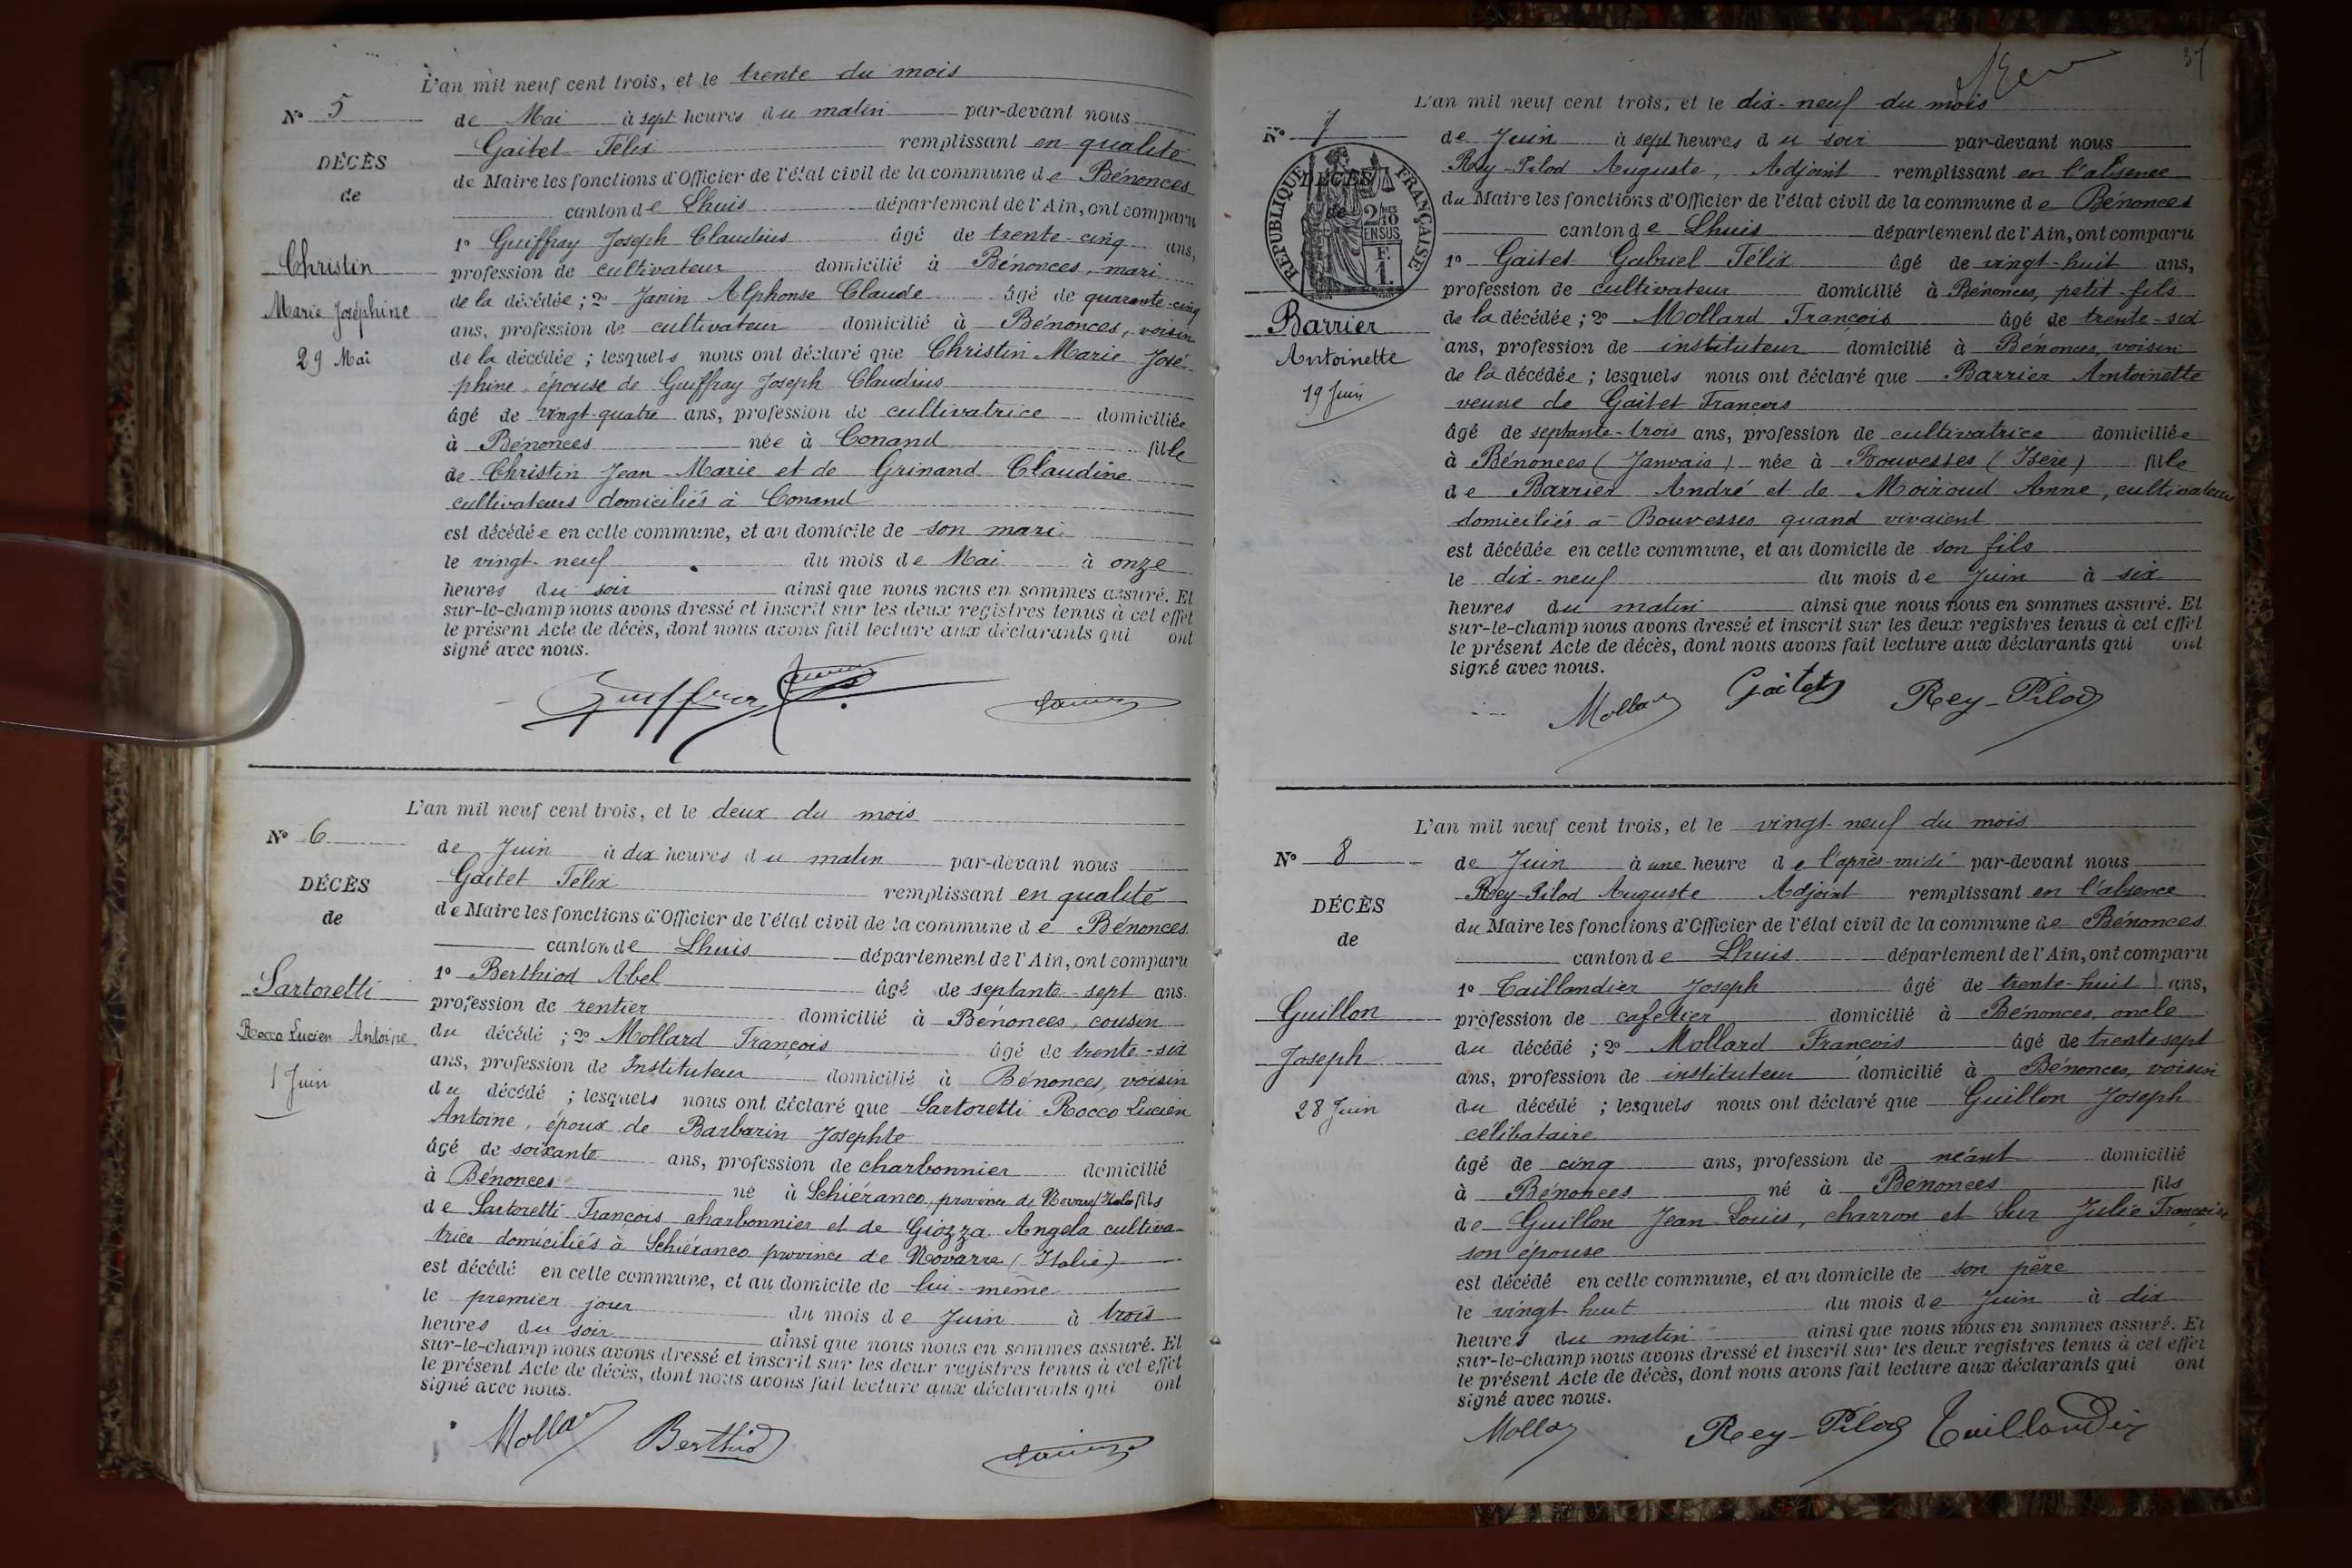 L'an mil neuf cent trois, et le trente du mois
N° 5
de Mai à sept heures du matin par-devant nous
Gaitet Félix remplissant en qualité
DÉCÈS
de Maire les fonctions d'Officier de l'état civil de la commune de Bénonces
de
canton de Lhuis département de l'Ain, ont comparu
1° Guiffray Joseph Claudius âgé de trente-cinq ans,
Christin
profession de cultivateur domicilié à Bénonces, mari
Marie Joséphine
de la décédée ; 2° Janin Alphonse Claude âgé de quarante-cinq
ans, profession de cultivateur domicilié à Bénonces, voisin
29 Mai
de la décédée ; lesquels nous ont déclaré que Christin Marie José-
phine, épouse de Guiffray Joseph Claudius
âgé de vingt-quatre ans, profession de cultivatrice domiciliée
à Bénonces née à Conand fille
de Christin Jean-Marie et de Grinand Claudine
cultivateurs domiciliés à Conand
est décédée en cette commune, et au domicile de son mari
le vingt-neuf du mois de Mai à onze
heures du soir ainsi que nous nous en sommes assuré. Et
sur-le-champ nous avons dressé et inscrit sur les deux registres tenus à cet effet
le présent Acte de décès, dont nous avons fait lecture aux déclarants qui ont
signé avec nous.
L'an mil neuf cent trois, et le deux du mois
N° 6
de Juin à dix heures du matin par-devant nous
Gaitet Félix remplissant en qualité
DÉCÈS
de Maire les fonctions d'Officier de l'état civil de la commune de Bénonces
de
canton de Lhuis département de l'Ain, ont comparu
1° Berthiod Abel âgé de septante-sept ans
Sartoretti
profession de rentier domicilié à Bénonces, cousin
Rocco Lucien Antoine
du décédé ; 2° Mollard François âgé de trente-six
ans, profession de Instituteur domicilié à Bénonces, voisin
1 Juin
du décédé ; lesquels nous ont déclaré que Sartoretti Rocco Lucien
Antoine, époux de Barbarin Josephte
âgé de soixante ans, profession de charbonnier domicilié
à Bénonces né à Schiéranco, province de Novare (Italie) fils
de Sartoretti François charbonnier et de Giozza Angela cultiva-
trice domiciliés à Schiéranco province de Novarre (Italie)
est décédé en cette commune, et au domicile de lui-même
le premier jour du mois de Juin à trois
heures du soir ainsi que nous nous en sommes assuré. Et
sur-le-champ nous avons dressé et inscrit sur les deux registres tenus à cet effet
le présent Acte de décès, dont nous avons fait lecture aux déclarants qui ont
signé avec nous.
Mollard Berthiod
37
L'an mil neuf cent trois, et le dix-neuf du mois
N° 7
de Juin à sept heures du soir par-devant nous
Rey-Pilod Auguste, Adjoint remplissant en l'absence
DÉCÈS
RÉPUBLIQUE FRANÇAISE
2/10 EN SUS
F. 1.
de
du Maire les fonctions d'Officier de l'état civil de la commune de Bénonces
canton de Lhuis département de l'Ain, ont comparu
1° Gaitet Gabriel Félix âgé de vingt-huit ans,
profession de cultivateur domicilié à Bénonces, petit-fils
Barrier
de la décédée ; 2° Mollard François âgé de trente-six
Antoinette
ans, profession de instituteur domicilié à Bénonces, voisin
de la décédée ; lesquels nous ont déclaré que Barrier Antoinette
19 Juin
veuve de Gaitet François
âgé de septante-trois ans, profession de cultivatrice domiciliée
à Bénonces (Janvais) née à Bouvesses (Isère) fille
de Barrier André et de Moiroud Anne, cultivateurs
domiciliés à Bouvesses quand vivaient
est décédée en cette commune, et au domicile de son fils
le dix-neuf du mois de Juin à six
heures du matin ainsi que nous nous en sommes assuré. Et
sur-le-champ nous avons dressé et inscrit sur les deux registres tenus à cet effet
le présent Acte de décès, dont nous avons fait lecture aux déclarants qui ont
signé avec nous.
Mollard Gaitet Rey-Pilod
L'an mil neuf cent trois, et le vingt-neuf du mois
N° 8
de Juin à une heure de l'après-midi par-devant nous
Rey-Pilod Auguste Adjoint remplissant en l'absence
DÉCÈS
du Maire les fonctions d'Officier de l'état civil de la commune de Bénonces
de
canton de Lhuis département de l'Ain, ont comparu
1° Taillandier Joseph âgé de trente-huit ans,
Guillon
profession de cafetier domicilié à Bénonces, oncle
Joseph
du décédé ; 2° Mollard François âgé de trente sept
ans, profession de instituteur domicilié à Bénonces, voisin
28 Juin
du décédé ; lesquels nous ont déclaré que Guillon Joseph
célibataire
âgé de cinq ans, profession de néant domicilié
à Bénonces né à Bénonces fils
de Guillon Jean-Louis, charron et Sur Julie Françoise
son épouse
est décédé en cette commune, et au domicile de son père
le vingt huit du mois de Juin à dix
heures du matin ainsi que nous nous en sommes assuré. Et
sur-le-champ nous avons dressé et inscrit sur les deux registres tenus à cet effet
le présent Acte de décès, dont nous avons fait lecture aux déclarants qui ont
signé avec nous.
Mollard Rey-Pilod Taillandier